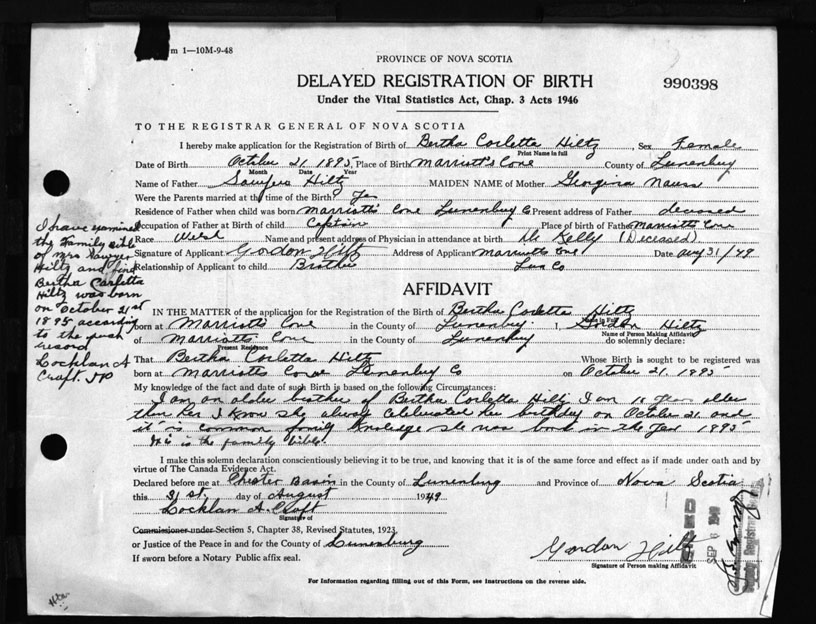 m 1—10M-9-48
PROVINCE OF NOVA SCOTIA
DELAYED REGISTRATION OF BIRTH
990398
Under the Vital Statistics Act, Chap. 3 Acts 1946
TO THE REGISTRAR GENERAL OF NOVA SCOTIA
I hereby make application for the Registration of Birth of Bertha Corletta Hiltz, Sex Female
Print Name in full
Date of Birth October 21 1895, Place of Birth Marriott's Cove County of Lunenburg
Month Date Year
Name of Father Sawyer Hiltz MAIDEN NAME of Mother Georgina
Were the Parents married at the time of Birth? Yes
Residence of Father when child was born Marriotts Cove Lunenburg Co Present address of Father deceased
Occupation of Father at Birth of child Captain Place of birth of Father Marriotts Cove
Race Name and present address of Physician in attendance at birth Dr Kelly (Deceased)
Signature of Applicant Gordon Hiltz Address of Applicant Marriotts Cove Date Aug 31/49
Relationship of Applicant to child Brother Lun Co
I have examined
the Family Bible
of Mrs Sawyer
Hiltz and find
Bertha Carletta
Hiltz was born
on October 21st
1895 according
to the
record
Locklan A
Craft. JP
AFFIDAVIT
IN THE MATTER of the application for the Registration of the Birth of Bertha Corletta Hiltz
Name in Full
born at Marriotts Cove in the County of Lunenburg. I, Gordon Hiltz
Name of Person Making Affidavit
of Marriotts Cove in the County of Lunenburg do solemnly declare:
Present Residence
That Bertha Corletta Hiltz Whose Birth is sought to be registered was
born at Marriotts Cove Lunenburg Co on October 21. 1895
My knowledge of the fact and date of such Birth is based on the following Circumstances:
I am an older brother of Bertha Corletta Hiltz I am years older
than her I know she always celebrated her birthday on October 21 and
it is common family knowledge she was born in the year 1895
is the family bible.
I make this solemn declaration conscientiously believing it to be true, and knowing that it is of the same force and effect as if made under oath and by
virtue of The Canada Evidence Act.
Declared before me at Chester Basin in the County of Lunenburg and Province of Nova Scotia
this 31st. day of August 1949
Locklan A. Craft
Signature of
Commissioner under Section 5, Chapter 38, Revised Statutes, 1923
or Justice of the Peace in and for the County of Lunenburg
If sworn before a Notary Public affix seal.
Gordon Hiltz
Signature of Person making Affidavit
SEP
For Information regarding filling out of this Form, see Instructions on the reverse side.